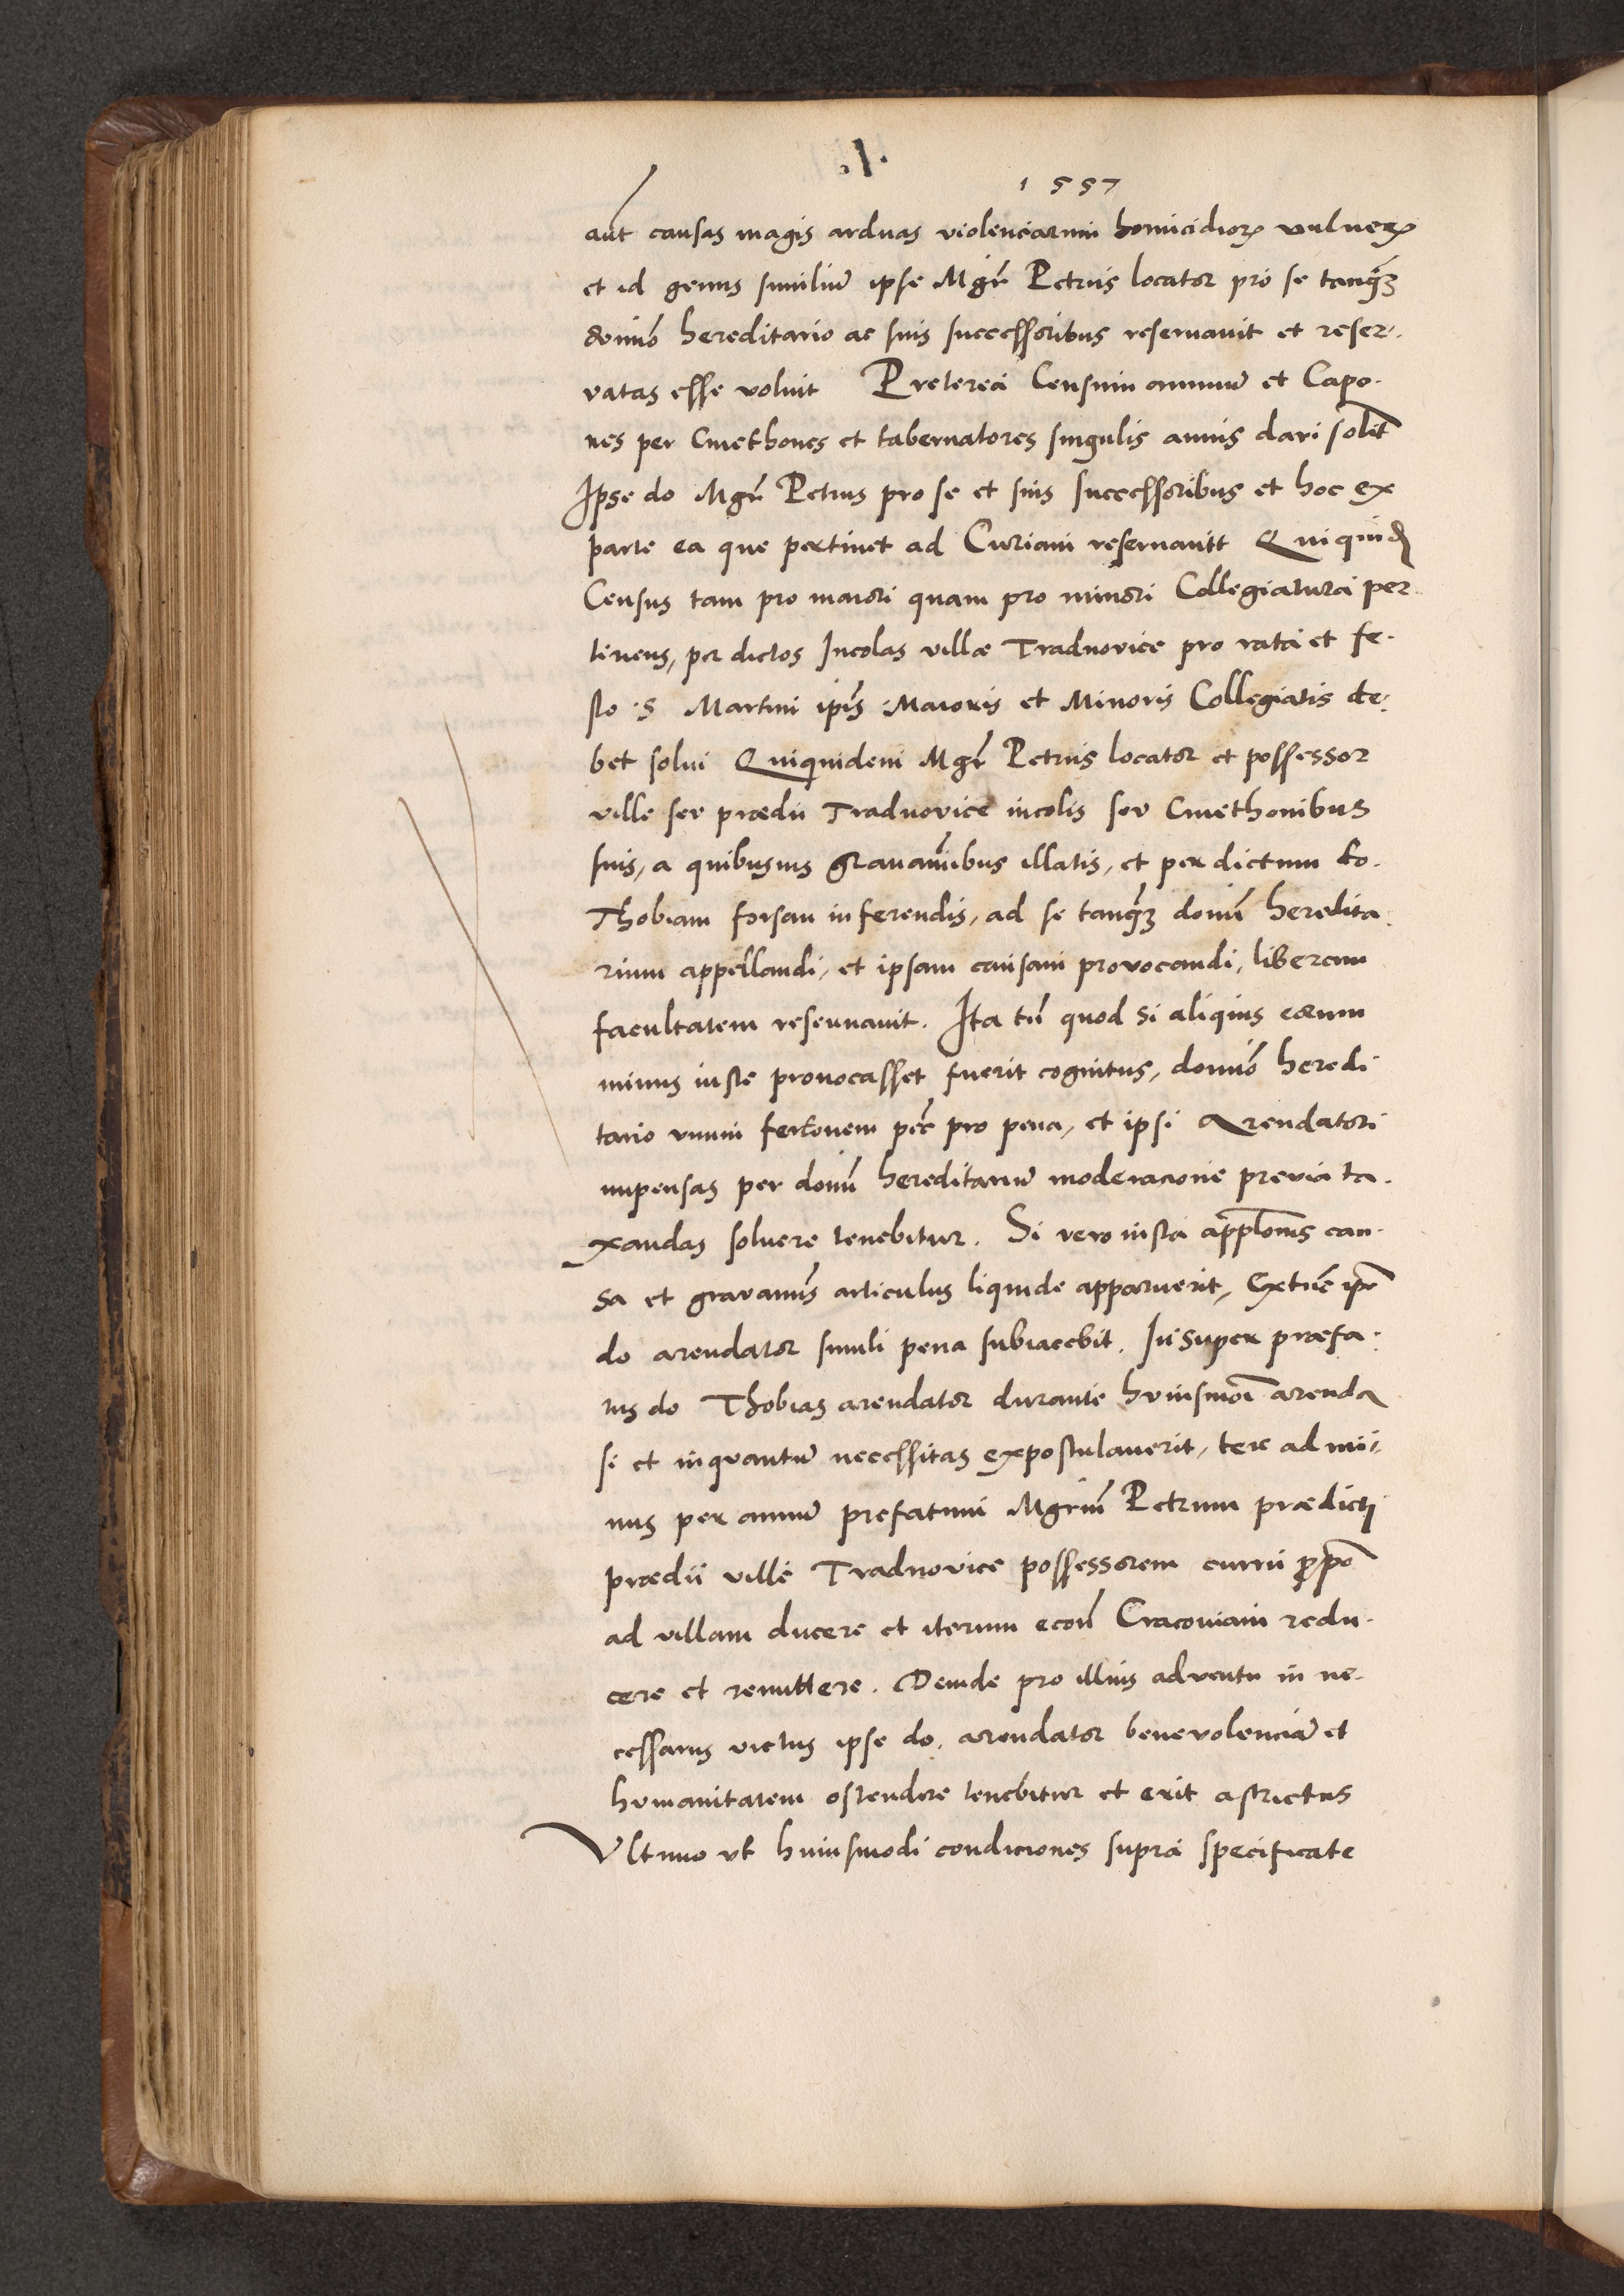 1557
aut causas magis arduas violenciarum homicidiorꝝ vulnerꝝ
et id genus similiū ipse Mgr̄ Petrus locator pro se tanq̄ȝ
domiō hereditario ac suis successoribus reservavit et reser-
vatas esse voluit Preterea Censum annuū et Capo-
nes per Cmethones et tabernatores singulis annis dari solit̄
Ipse do Mgr̄ Petrus pro se et suis successoribus et hoc ex
parte ea que pertinet ad Curiam reservavit Quiquid
Census tam pro maiori quam pro minori Collegiatura per-
tinens, per dictos Incolas villæ Tradnovice pro rata et fe-
sto S Martini ip̄is Maioris et Minoris Collegiatis de-
bet solui Quiquidem Mgr̄ Petrus locator et possessor
ville seu prædii Tradnovice incolis seu Cmethonibus
suis, a quibusuis gravam̄ibus illatis, et per dictum do.
Thobiam forsan inferendis, ad se tanq̄ȝ domī heredita-
rium appellandi, et ipsam causam provocandi, liberam
facultatem reservavit. Ita tn̄ quod si aliquis eorum
minus iuste provocasset fuerit cognitus, domiō heredi
tario unum fertonem pec̄ pro pena, et ipsi Arendatori
impensas per domī hereditariū moderacione previa ta-
xandas soluere tenebitur. Si vero iusta appl̄onis cau-
sa et gravamīs articulus liquide apparuerit, Extūc ip̄e
do arendator simili pena subiacebit. Insuper præfa-
tus do Thobias arendator durante huiusmōi arenda
si et inquantū necessitas expostulaverit, ter ad mi-
nus per annū prefatum Mgrm̄ Petrum prædicti
prædii ville Tradnovice possessorem curru ꝓpo
ad villam ducere et iterum econ̄ Cracoviam redu-
cere et remittere. Deinde pro illius adventu in ne-
cessariis victus ipse do. arendator benevolenciā et
humanitatem ostendere tenebitur et erit astrictus
Ultimo ut huiusmodi condiciones supra specificate